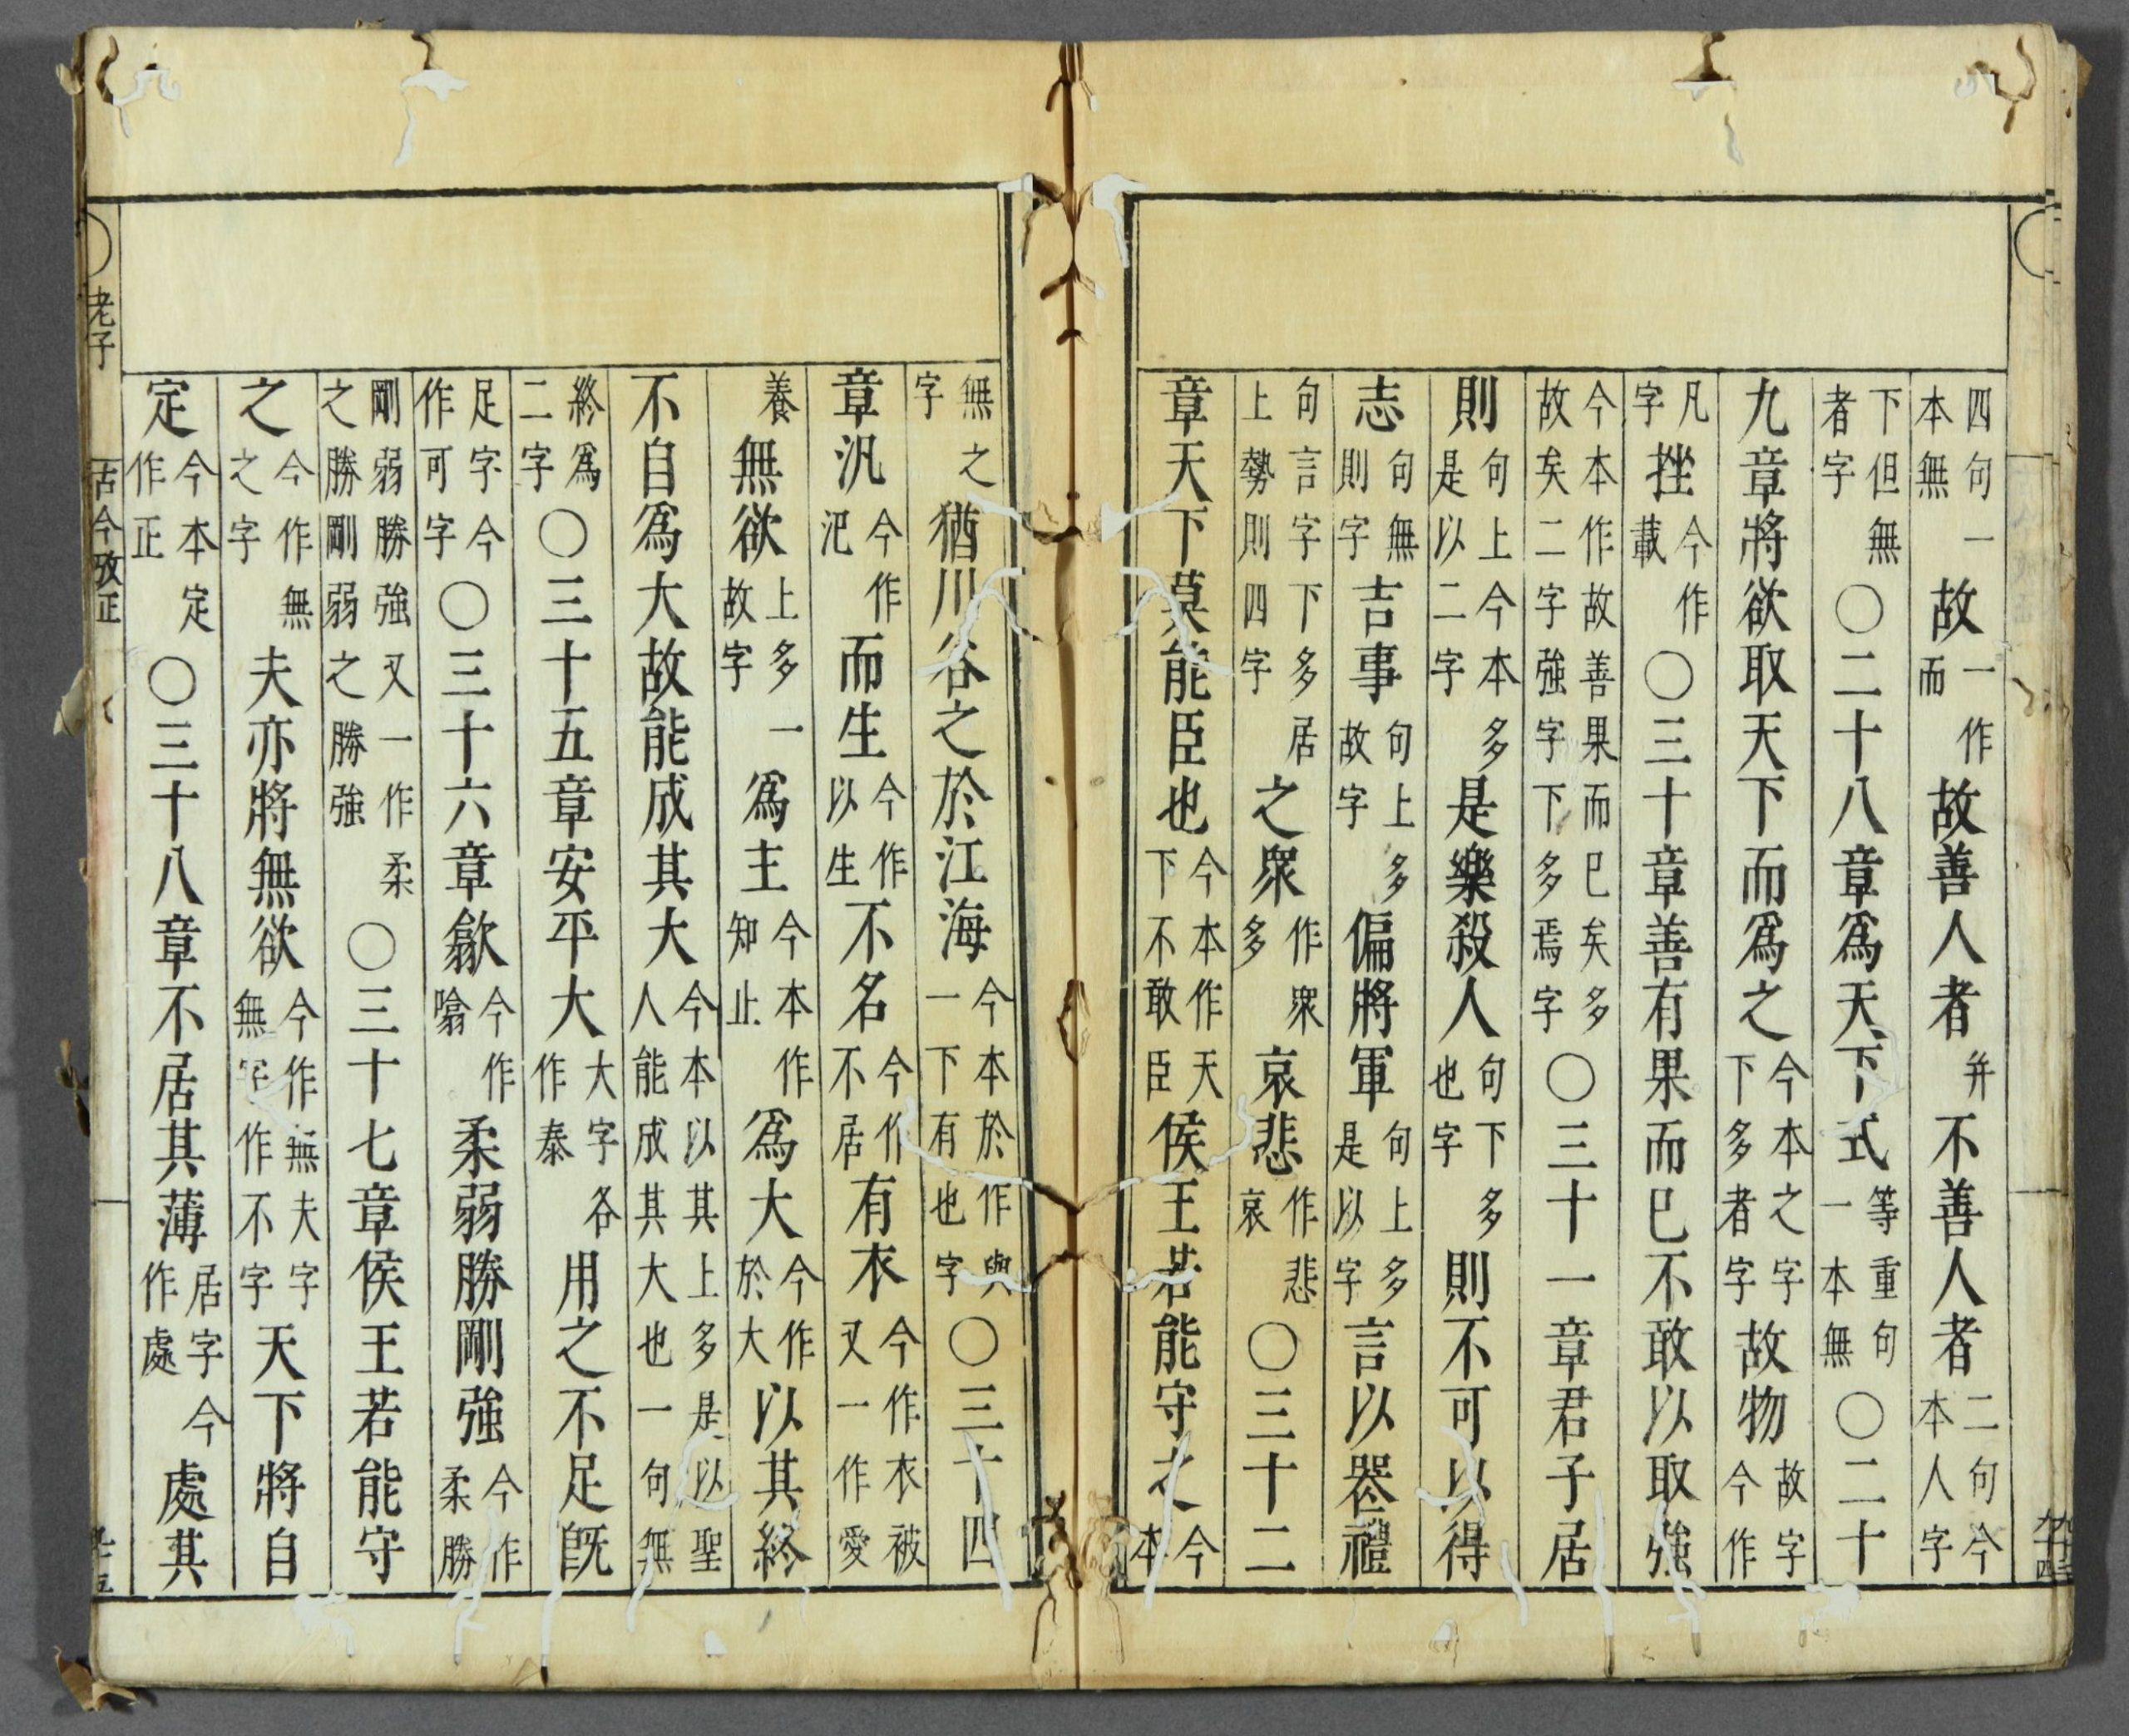 四句一本無故一作而故善人者并不善人者二句今本人字
下但無者字〇二十八章爲天下式等重句一本無〇二十
九章將欲取天下而爲之今本之字下多者字故物故字今作
凡字挫今作載〇三十章善有果而已不敢以取強
今本作故善果而已矣多故矣二字強字下多焉字〇三十一章君子居
則句上今本多是以二字是樂殺人句下多也字則不可以得
志句無則字吉事句上多故字偏將軍句上多是以字言以喪禮
句言字下多居上勢則四字之衆作衆多哀悲作悲哀〇三十二
章天下莫能臣也今本作天下不敢臣侯王若能守之今本
無之字猶川谷之於江海今本於作與一下有也字〇三十四
章汎今作氾而生今作以生不名今作不居有衣今作衣被又一作愛
養無欲上多一故字爲主今本作知止爲大今作於大以其終
不自爲大故能成其大今本以其上多是以聖人能成其大也一句無
終爲二字〇三十五章安平大大字各作泰用之不足既
足字今作可字〇三十六章歙今作噏柔弱勝剛強今作柔勝
剛弱勝強又一作柔之勝剛弱之勝強〇三十七章侯王若能守
之今作無之字夫亦將無欲今作無夫字無字作不字天下將自
定今本定作正〇三十八章不居其薄居字今作處處其
〇老子 古今攷正